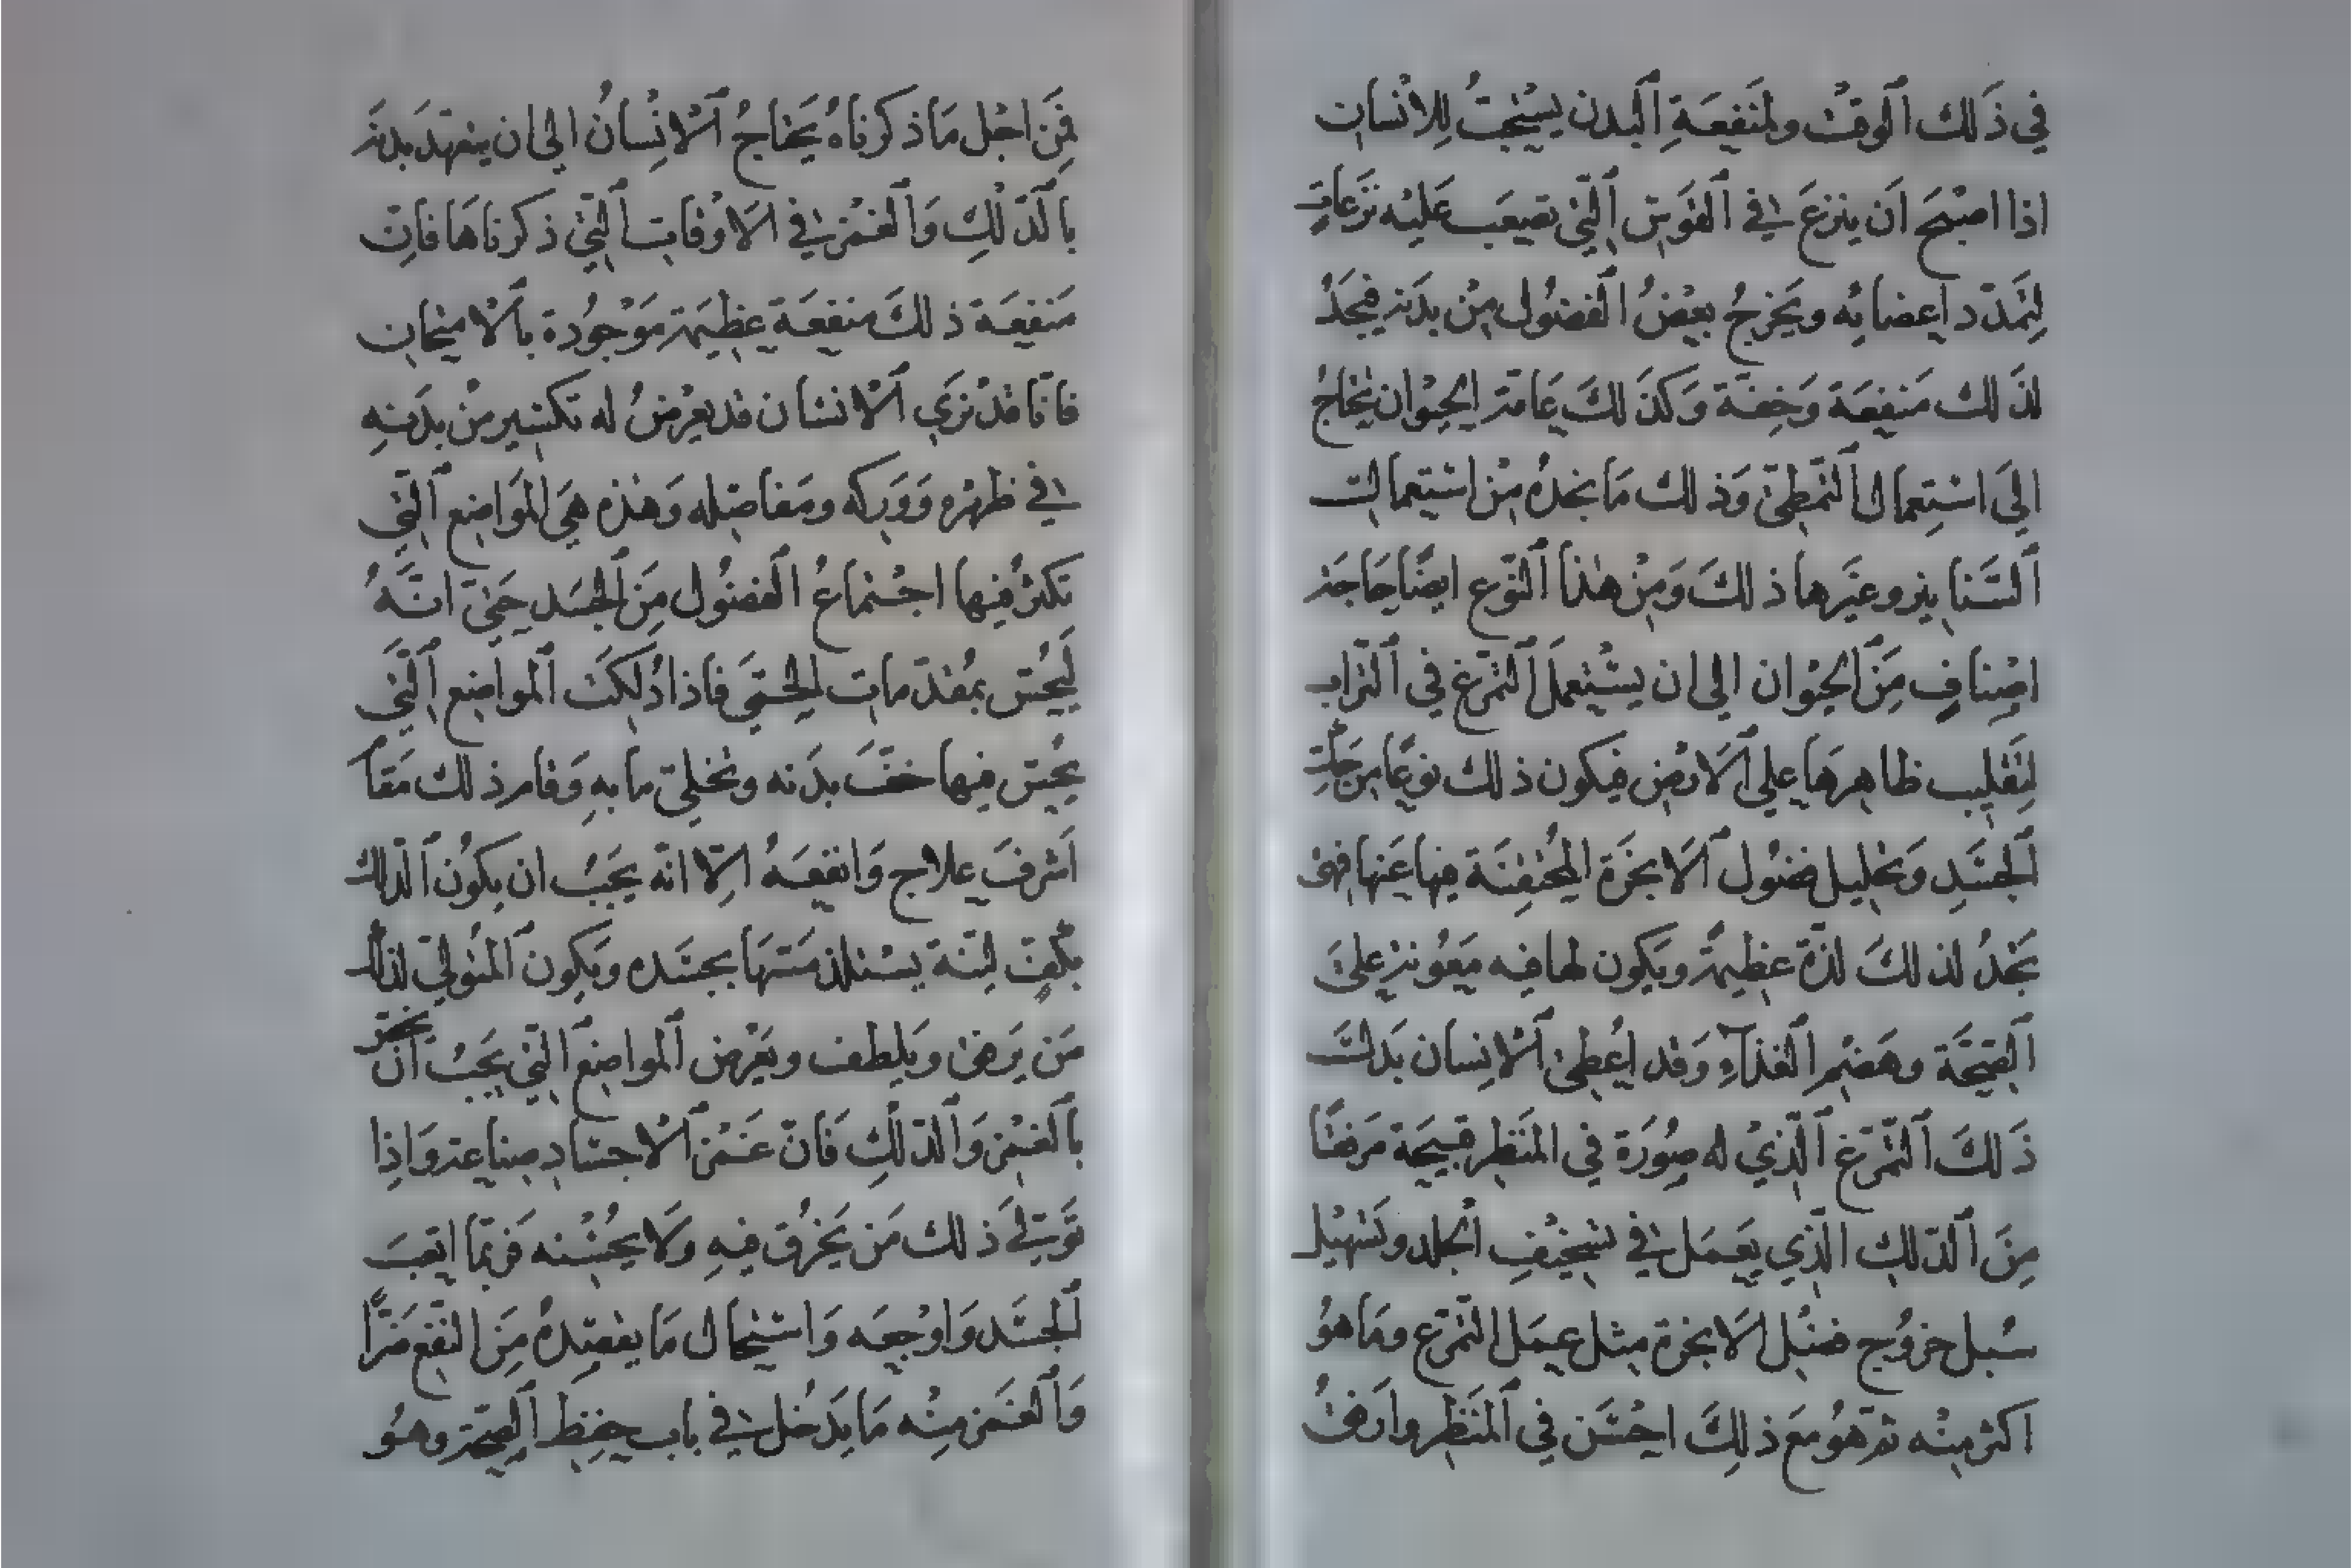 في ذَلك ٱلوقت ولمنفعَةِ ٱلبدن يستحبُّ للانسان
اذا اصبحَ اَن ينزعَ في ٱلقَوس ٱلتي تصعب عَليْه نزعَات
لتمدّد اعضائه ويخرجُ بعضُ ٱلفضُول من بدَنه فيجدُ
لذَلك مَنفعَة وَخفّة وَكذَلكَ عَامّة الحيوان تحتاجُ
الىَ استعمال ٱلتمطّي وَذلك مَا نجدهُ من استعمالـ
ٱلسّنانير وغيَرها ذلكَ وَمن هٰذا ٱلنّوع ايضًا حَاجة
اصناف مِنَ ٱلحيوان الى ان يستعملَ ٱلتمرّغ في ٱلتراب
لتقَليب ظاهرهَا على ٱلاَرض فيكون ذلك نوعًا من حَكّ
ٱلجسَدِ وَتحليل فضُول ٱلاَبخرَة المحتقنَة فيها عَنها فهى
تجَدُ لذلكَ لذّة عظيمةً ويَكون لها فيه مَعُونة علىَ
ٱلصّحّة وهَضم ٱلغذآءِ وَقد اعُطى ٱلانسان بَدلـ
ذَلكَ ٱلتّمرّغ ٱلّذي له صُورَة في المنَظر قبيحَة مَرفضًا
مِنَ ٱلدّلك الّذي يعَمَل في تسخيفِ ٱلجلد وتَسهيل
سُبل خروُج فضُل ٱلاَبخرة مثل عمَل التّمرّغ ومَا هوُ
اكثر منْه ثمّ هوُ مَعَ ذلِكَ احسَن في ٱلمنَظر واَرفقُ
فمَن اجْل مَا ذكرناهُ يَحتاجُ ٱلانسانُ الى ان يتعَهّدَ بدنَه
بالَدّلكِ وَٱلغمْز في ٱلاَوْقات ٱلّتي ذكرناهَا فانّ
مَنفعَة ذلكَ منفعَة عظيمَة مَوْجُودة بٱلامتحان
فانّا قدْ نرَي ٱلانسان قد يعْرضُ له تكسّير منْ بدَنهِ
في ظهْره وَوَركه ومَفاصله وَهٰذه هَي المَوَاضع ٱلّتي
تكثر فيها اجْتماعُ ٱلفضُول مِنَ ٱلجسَد حتىّ انّهُ
لَيُحسّ بمُقدّمات الحمّىَ فاذا دُلكَت ٱلمواضع ٱلّتي
يحُسّ فيها خفّ بدَنه وتحلّل ما بهِ وَقامر ذلك مَقامَ
اَشرفَ علاج وَانفعَهُ الّا انّه يجَبُ ان يكوُن ٱلدّلك
بكفّ لينّة يستلذّ مَسّهَا بجسَده وَيكون ٱلمتولّي لذلك
مَن يَرفق ويَلطف ويعَرض ٱلمواضع ٱلتي يجَبُ اَن تخصّ
بٱلغمْز وَٱلدّلكِ فَانّ غَمْز ٱلاجسَاد صناعَة وَاذِا
توَلّى ذلك مَن يَخرُق فيهِ وَلا يحُسْنه فربمّا اتعَبَ
ٱلجسَد وَاوْجعَه وَاستحال مَا يقصدهُ مِنَ النّفع ضَرًّا
وَٱلغمَز منْه مَا يدَخل في باب حفظ ٱلصّحّة وهوُ